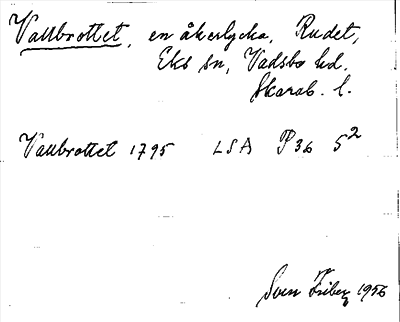 Vallbrottet, en åkerlycka, Rudet,
Eks sn, Vadsbo hd.
Skarab. l.
Vallbrottet 1795 LSA P36 5²
Sven Friberg 1956